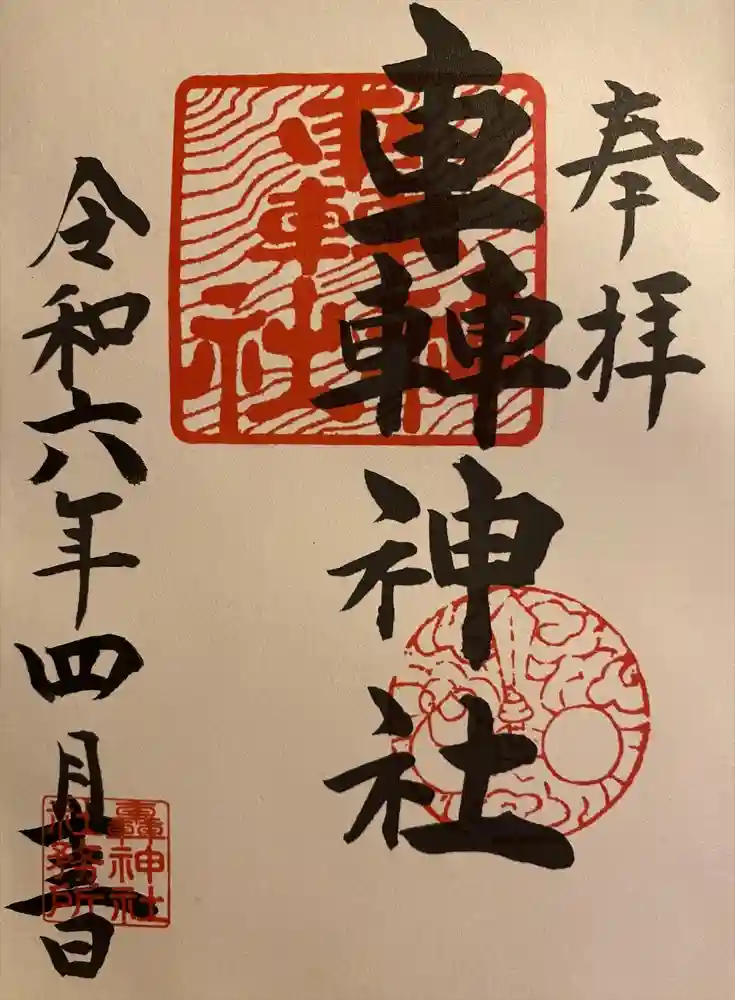 奉拝
轟神社
令和六年四月
轟神社
社務所